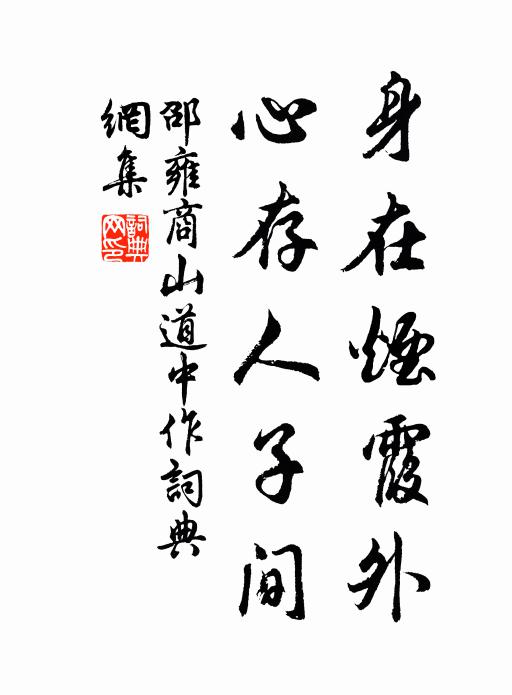 身在煙霞外
心存人子间
邵雍商山道中作詞典
網集
詞典
网印